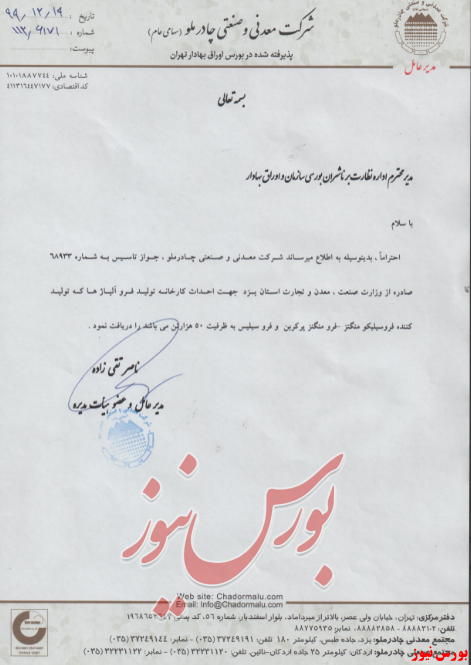 شرکت معدنی و صنعتی چادرملو (سامی عام)
پذیرفته شده در بورس اوراق بهادار تهران
تاریخ : ۹۹/۱۲/۱۹
شماره :
پیوست:
شناسه ملی: ۱۰۱۰۱۸۸۷۷۴۴
کد اقتصادی: ۴۱۱۳۱۶۴۴۷۱۷۷
مدیرعامل
بسمه تعالی
مدیر محترم اداره نظارت بر ناشران بورسی سازمان و اوراق بهادار
با سلام
احتراماً ، بدینوسیله به اطلاع میرساند شرکت معدنی و صنعتی چادرملو ، جواز تاسیس به شماره ۶۸۹۳۳
صادره از وزارت صنعت ، معدن و تجارت استان یزد جهت احداث کارخانه تولید فرو آلیاژ ها که تولید
کننده فروسیلیکو منگنز -فرو منگنز پرکربن و فرو سیلیس به ظرفیت ۵۰ هزارتن می باشد را دریافت نمود .
ناصر تقی زاده
مدیر عامل و عضو هیأت مدیره
بورس نیوز
Web site: Chadormalu.com
Email: Info@Chadormalu.com
دفتر مرکزی: تهران، خیابان ولی عصر، بالاتر از میرداماد، بلوار اسفندیار، شماره ۵۶، کد پستی
تلفن: ۲-۸۸۸۸۳۱۰ - ۸۸۸۸۲۸۵۸ - نمابر: ۸۸۷۷۵۹۳۵
مجتمع معدنی چادرملو: یزد، جاده طبس، کیلومتر ۱۸۰ تلفن: ۳۷۲۴۹۱۹۱ (۰۳۵) - نمابر: ۳۷۲۴۹۱۴۴ (۰۳۵)
مجتمع صنعتی چادرملو: اردکان، کیلومتر ۲۵ جاده اردکان-نائین، تلفن: ۳۲۲۳۱۱۲۰ (۰۳۵) - نمابر: ۳۲۲۳۱۱۲۲ (۰۳۵)
بورس‌نیوز